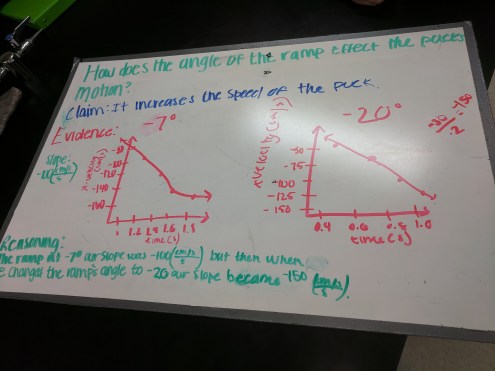 How does the angle of the ramp effect the pucks
motion?
Claim: It increases the speed of the puck.
Evidence:
-7°
-20°
slope:
-100
x-velocity (cm/s)
-80
-100
-120
-140
-160
1 1.2 1.4 1.6 1.8
time(s)
-50
-75
-100
-125
-150
0.4 0.6 0.8 1.0
time(s)
Reasoning:
The ramp at -7° our slope was -100 (cm/s/s) but then when
we changed the ramp's angle to -20 our slope became -150 (cm/s/s).